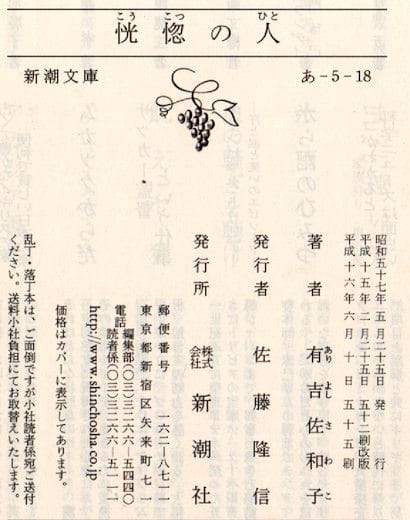 こう こつ ひと
恍惚の人
新潮文庫 あ-5-18
昭和五十七年五月二十五日 発行
平成十五年二月二十五日 五十二刷改版
平成十六年六月十日 五十五刷
著者 有吉佐和子
あり よし さ わ こ
発行者 佐藤隆信
発行所 株式会社 新潮社
郵便番号 一六二―八七一一
東京都新宿区矢来町七一
電話 編集部(〇三)三二六六―五四四〇
読者係(〇三)三二六六―五一一一
http://www.shinchosha.co.jp
価格はカバーに表示してあります。
乱丁・落丁本は、ご面倒ですが小社読者係宛ご送付
ください。送料小社負担にてお取替えいたします。